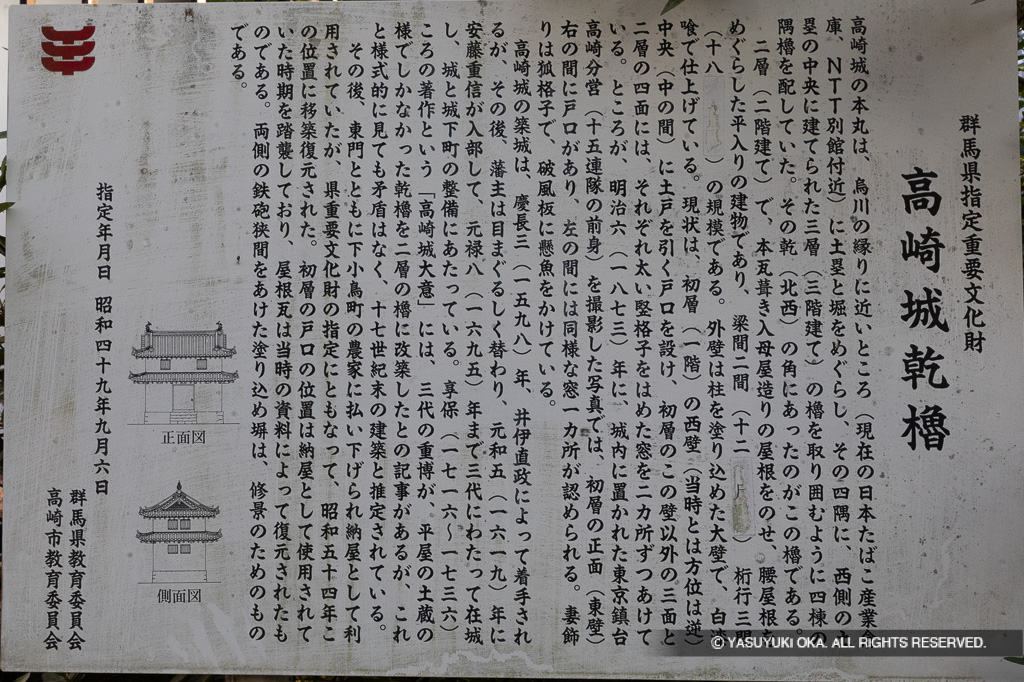 群馬県指定重要文化財
高崎城乾櫓
高崎城の本丸は、烏川の縁りに近いところ（現在の日本たばこ産業倉
庫、ＮＴＴ別館付近）に土塁と堀をめぐらし、その四隅に、西側の土
塁の中央に建てられた三層（三階建て）の櫓を取り囲むように四棟の
隅櫓を配していた。その乾（北西）の角にあったのがこの櫓である。
二層（二階建て）で、本瓦葺き入母屋造りの屋根をのせ、腰屋根を
めぐらした平入りの建物であり、梁間二間（十二尺）桁行三間
（十八）の規模である。外壁は柱を塗り込めた大壁で、白漆
喰で仕上げている。現状は、初層（一階）の西壁（当時とは方位は逆）
中央（中の間）に土戸を引く戸口を設け、初層のこの壁以外の三面と
二層の四面には、それぞれ太い堅格子をはめた窓を二カ所ずつあけて
いる。ところが、明治六（一八七三）年に、城内に置かれた東京鎮台
高崎分営（十五連隊の前身）を撮影した写真では、初層の正面（東壁）
右の間に戸口があり、左の間には同様な窓一カ所が認められる。妻飾
りは狐格子で、破風板に懸魚をかけている。
高崎城の築城は、慶長三（一五九八）年、井伊直政によって着手され
るが、その後、藩主は目まぐるしく替わり、元和五（一六一九）年に
安藤重信が入部して、元禄八（一六九五）年まで三代にわたって在城
し、城と城下町の整備にあたっている。享保（一七一六～一七三六）
ころの著作という「高崎城大意」には、三代の重博が、平屋の土蔵の
様でしかなかった乾櫓を二層の櫓に改築したとの記事があるが、これ
と様式的に見ても矛盾はなく、十七世紀末の建築と推定されている。
その後、東門とともに下小鳥町の農家に払い下げられ納屋として利
用されていたが、県重要文化財の指定にともなって、昭和五十四年こ
の位置に移築復元された。初層の戸口の位置は納屋として使用されて
いた時期を踏襲しており、屋根瓦は当時の資料によって復元されたも
のである。両側の鉄砲狭間をあけた塗り込め塀は、修景のためのもの
である。
正面図
側面図
指定年月日 昭和四十九年九月六日
群馬県教育委員会
高崎市教育委員会
©YASUYUKI OKA. ALL RIGHTS RESERVED.